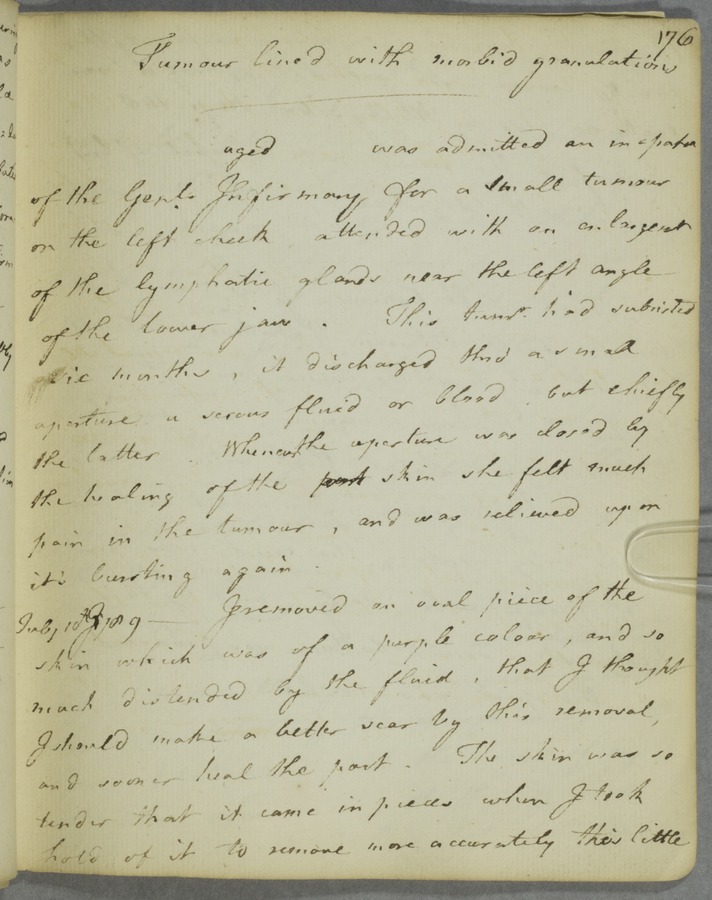 176
Tumour lined with morbid granulations
aged was admitted an in-patn
of the Genl. Infirmary for a small tumour
on the left cheek attended with an enlargemt
of the lymphatic glands near the left angle
of the lower jaw. This tumr. had subsisted
six months, it discharged thro' a small
aperture a serous fluid or blood, but chiefly
the latter. Whenever the aperture was closed by
the healing of the skin she felt much
pain in the tumour, and was relieved upon
it's bursting again.
July 10th 1809— I removed an oval piece of the
skin which was of a purple colour, and so
much distended by the fluid, that I thought
I should make a better scar by this removal,
and sooner heal the part. The skin was so
tender that it came in pieces when I took
hold of it to remove more accurately this little